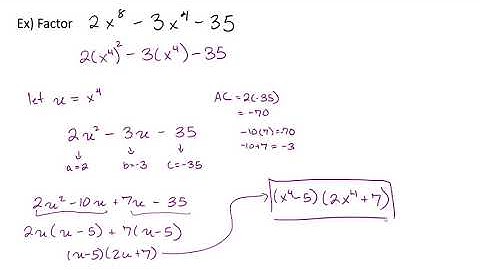 Ex) Factor 2x⁸ - 3x⁴ - 35
2(x⁴)² - 3(x⁴) - 35
let u = x⁴
AC = 2(-35)
= -70
2u² - 3u - 35
↓ ↓ ↓
a=2 b=-3 c=-35
-10(7)=-70
-10+7 = -3
2u² -10u + 7u - 35
2u(u - 5) + 7(u - 5)
(u-5)(2u+7)
(x⁴-5)(2x⁴+7)